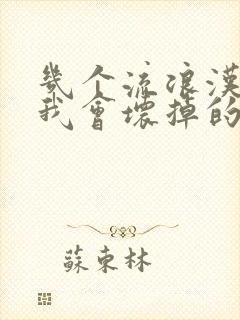 幾个流浪漢
我會壞掉的
蘇東林